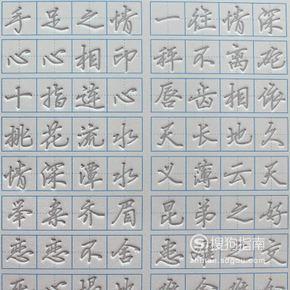 手足之情 一往情深
心心相印 秤不离砣
十指连心 唇齿相依
桃花流水 天长地久
情深潭水 义薄云天
举案齐眉 昆弟之好
恋恋不舍 患 交
搜狗指南
zhinan.sogou.com